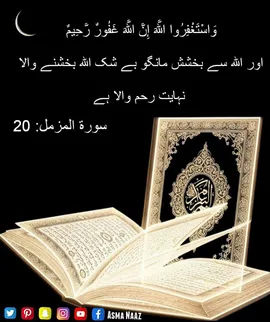 وَاسْتَغْفِرُوا اللَّهَ إِنَّ اللَّهَ غَفُورٌ رَّحِيمٌ
اور اللہ سے بخشش مانگو بے شک اللہ بخشنے والا
نہایت رحم والا ہے
سورة المزمل: 20
ASMA NAAZ